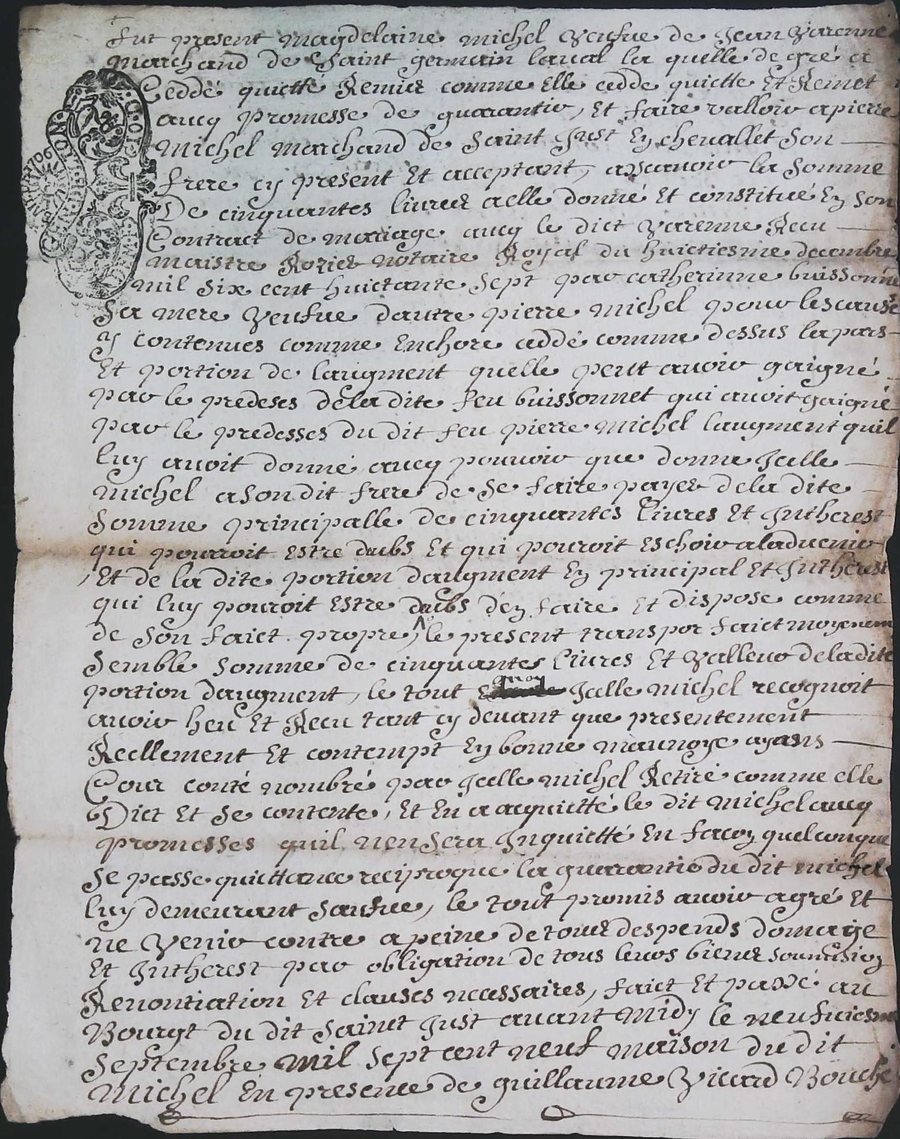 fut present magdelaine michel vefue de Jean Varenne
marchand de Saint germain laual la quelle de gré a
Ceddé quiette Remier comme Elle cedde quiette Et Remet
aucq promesse de guarantir, Et faire valloir a pierre
michel marchand de Saint Just En chevallet Son
frere cy present Et acceptant, ascauoir la Somme
De cinquantes liures a elle donné Et constitué En Son
Contract de mariage aucq le dict Varenne Recu
maistre notaire Royal du huictiesme decembre
mil six cent huictante Sept par catherinne buissonne
Sa mere vefue dautre pierre michel pour les cause
y contenues comme Enchore cedde comme dessus la pars
Et portion de laugment quelle peut auoir gaigné
par le predeses dela dite feu buissonnet qui auoit gaigné
par le predesses du dit feu pierre michel laugment quil
luy auoit donné aucq pouuoir que donne Jcelle
michel a son dit frere de Se faire payer dela dite
Somme principalle de cinquantes liures Et Jntherest
qui pourroit Estre dubs Et qui pouroit Eschoir aladuenir
, Et de la dite portion daugment En principal Et Jntherest
qui luy pouroit Estre dubs d'en faire Et dispose comme
de Son faict propre, le present transpor faict moyenem
Semble Somme de cinquantes liures Et valleur dela dite
portion daugment, le tout Jcelle michel recognoit
auoir heu Et Recu tant cy deuant que presentement
Reellement Et contempt En bonne maunoye ayans
Cour conté nombré par Jcelle michel Retiré comme elle
Dict Et Se contente, Et En a acquietté le dit michel aucq
promesses quil nen Sera Jnquietté En facon quelconque
Se passe quiettance reciproque la guarantie du dit michel
luy demeurant Saufue, le tout promis auoir agré Et
ne Venir contre a peine de tous despends domage
Et Jntherest par obligation de tous leurs biens Soumision
Renontiation Et clauses necessaires, faict Et passé au
Bourgt du dit Saint Just auant midy le neufuiesme
Septembre mil Sept cent neuf maison du dit
Michel En presence de guillaume Vicard Bouche